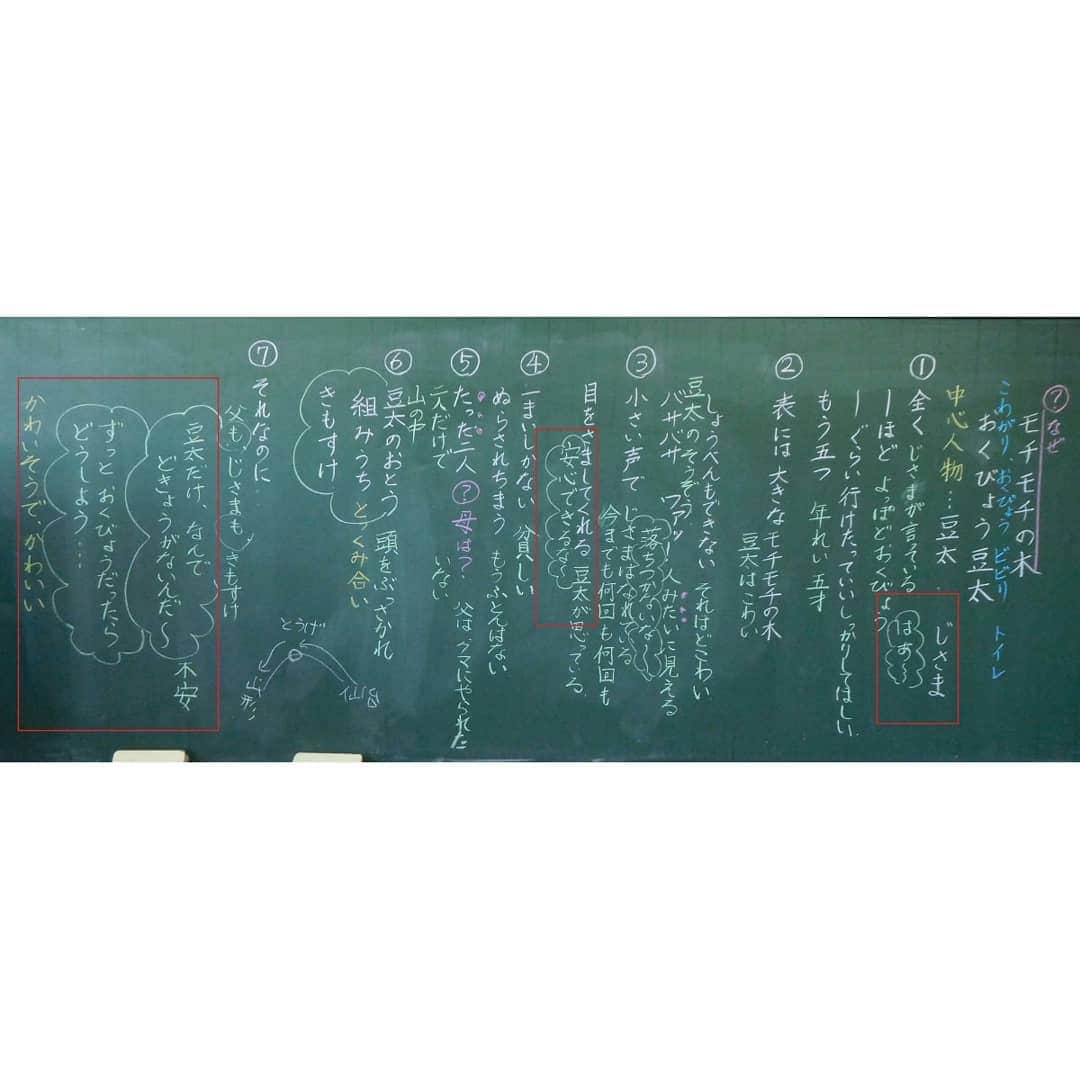 ?なぜ
モチモチの木
こわがり おびょう ビビリ トイレ
おくびょう豆太
中心人物…豆太
じさま
はあ〜
①全く じさまが言っている
ーほど よっぽどおくびょう
ーぐらい 行けたっていい しっかりしてほしい
もう五つ 年れい 五才
②表には大きなモチモチの木
豆太はこわい
しょうべんもできない それほどこわい
豆太のそうぞう
バサバサ ワァッー 人みたいに見える
落ちつかないな〜
③小さい声で じさまはなれている
今までも何回も何回も
目をさましてくれる 豆太が思っている
安心できるな〜
④一まいしかない 貧ぺしい
ぬらされちまう もうふとんはない
⑤たった二人 ?母は? 父はクマにやられた
二人だけで いない
山の中
⑥豆太のおとう 頭をぶっさかれ
組みうち とっくみ合い
きもすけ
とうげ
⑦それなのに…
父も じさまも きもすけ
豆太だけ、なんで
どきょうがないんだ〜
不安
ずっとおくびょうだったら
どうしよう…
かわいそうで、かわいい